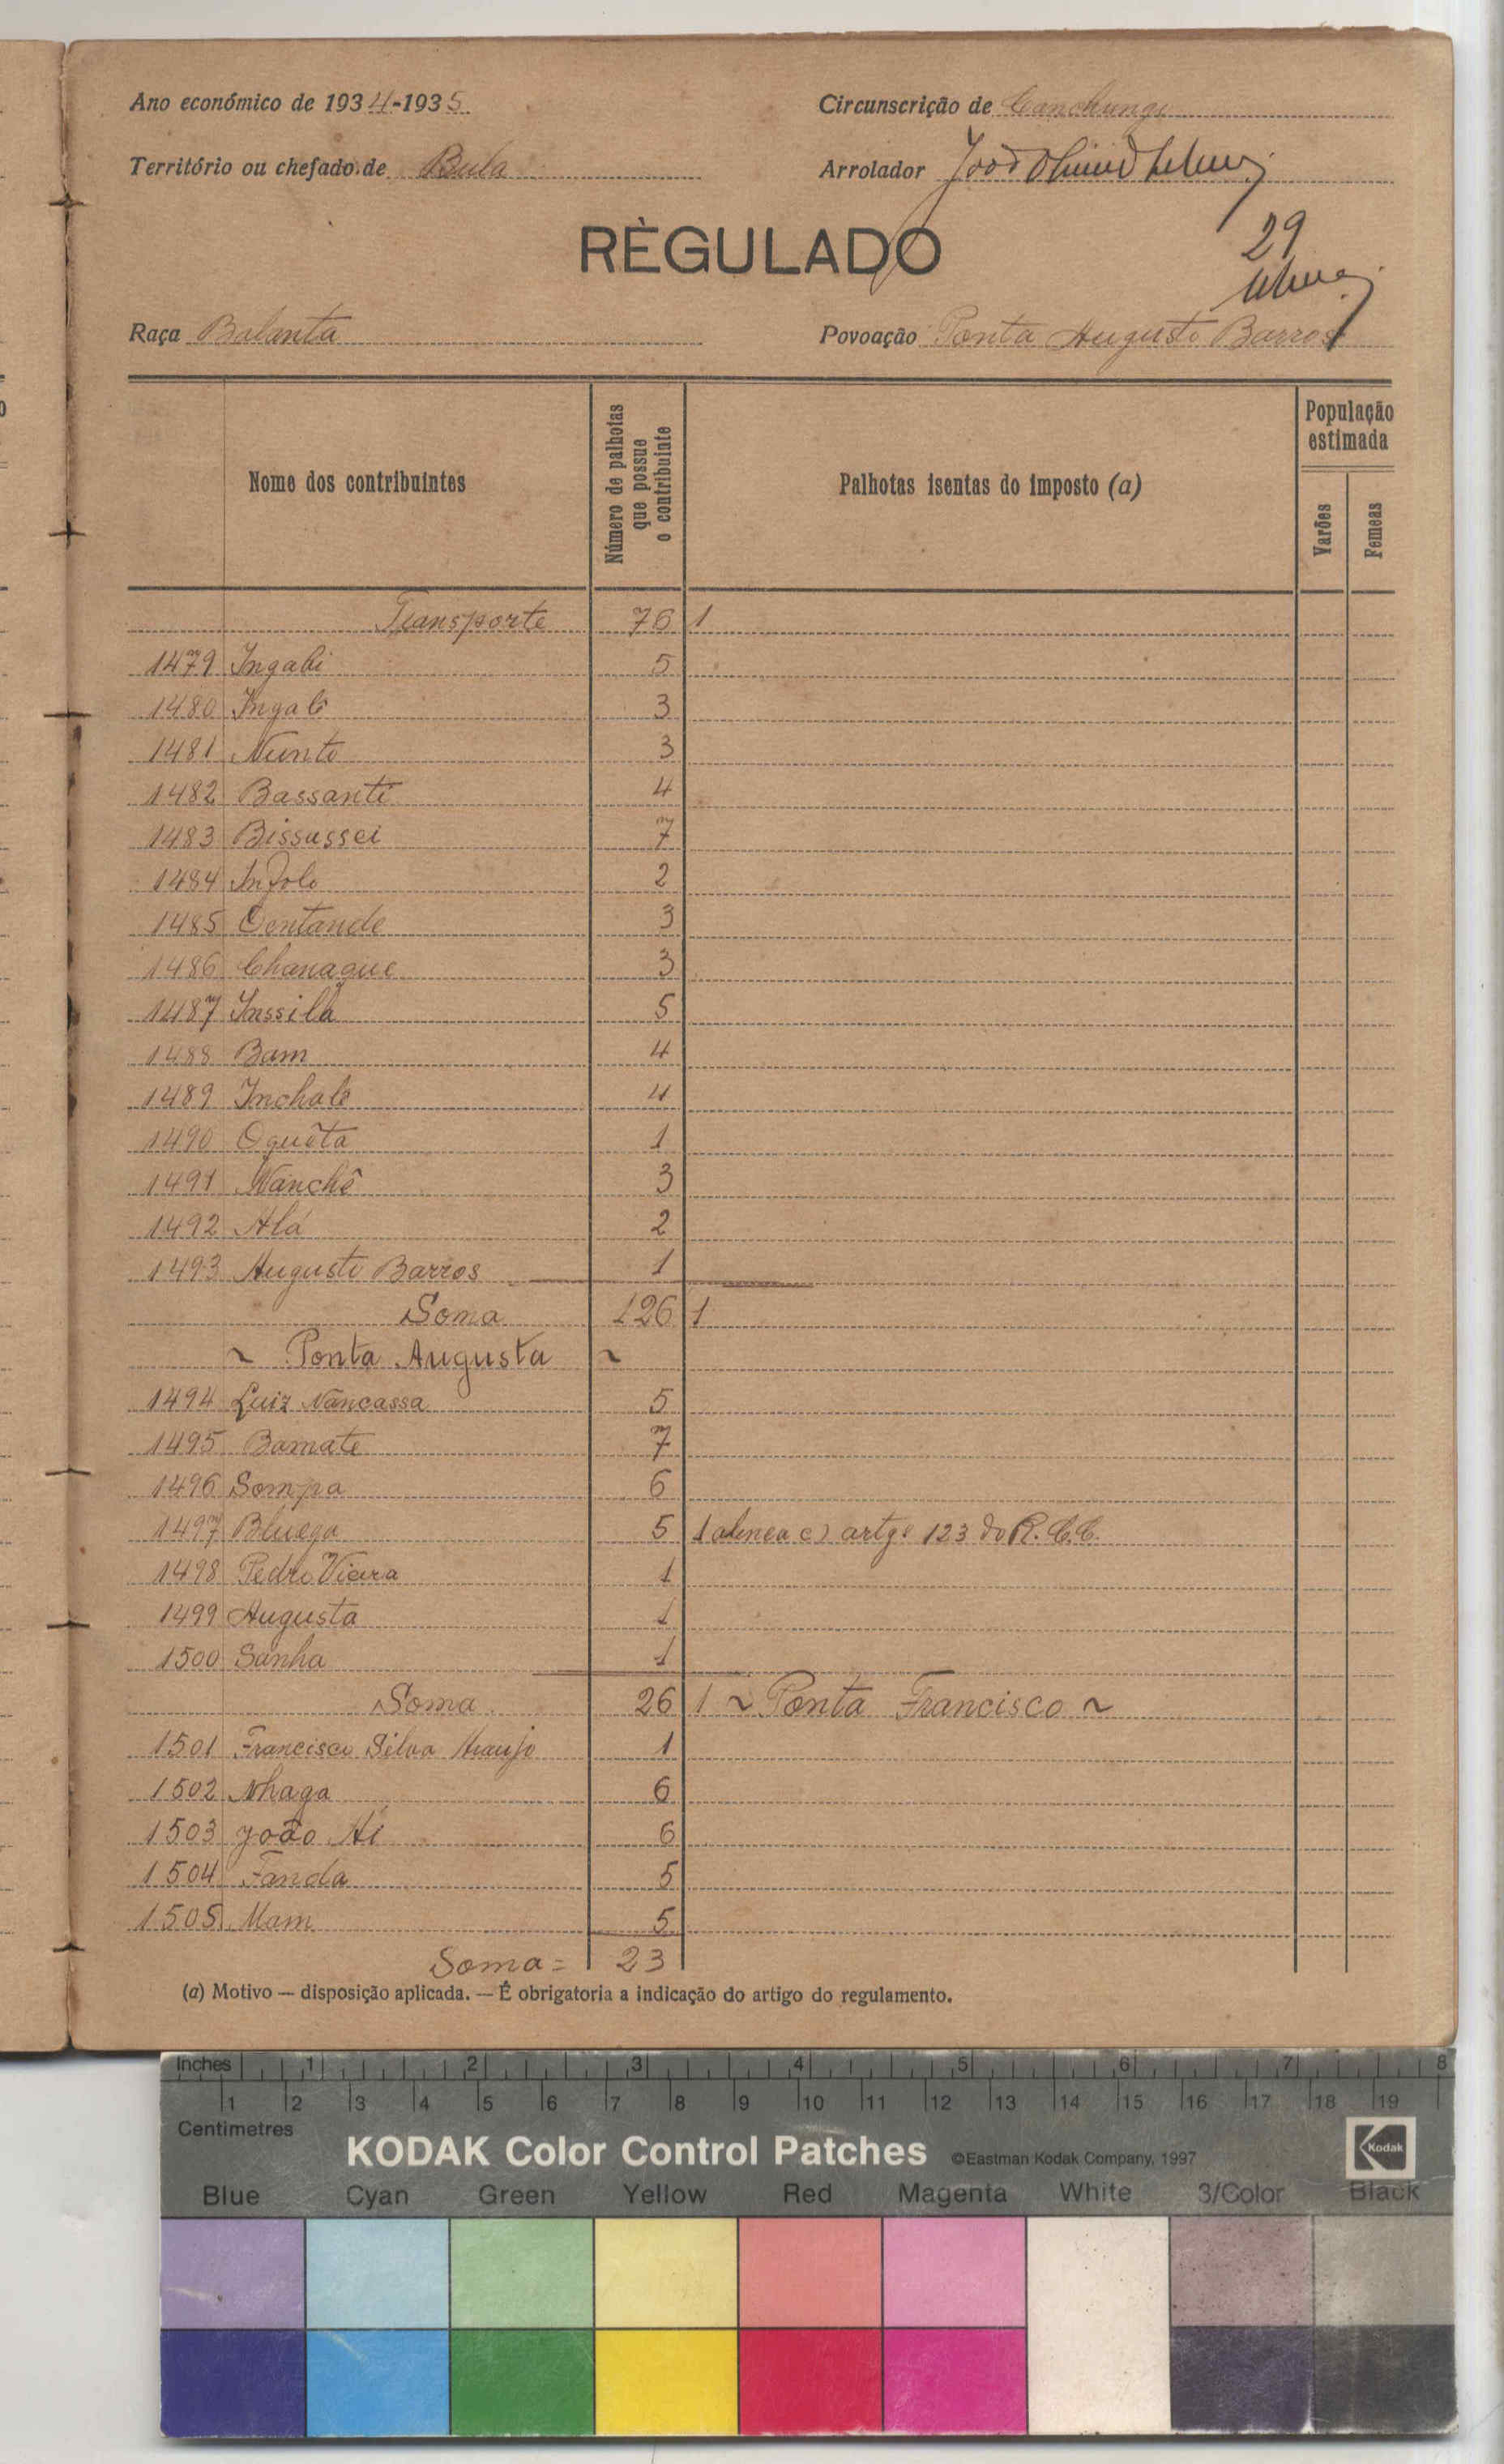 Ano económico de 1934-1935 Circunscrição de Canchungo
Território ou chefado de Bula Arrolador
RÈGULADO
29
Raça Balanta Povoação Ponta Augusto Barros
Nome dos contribuintes
Número de palhotas que possue o contribuinte
Palhotas isentas do imposto (a)
População estimada
Varões
Femeas
Transporte 76 1
1479 Ingabi 5
1480 Ingalé 3
1481 Nunto 3
1482 Bassanti 4
1483 Bissussei 7
1484 Infolo 2
1485 Ocntande 3
1486 Chanaque 3
1487 Inssilá 5
1488 Bam 4
1489 Inchalé 4
1490 Oquêta 1
1491 Nanchê 3
1492 Alá 2
1493 Augusto Barros 1
Soma 126 1
~ Ponta Augusta ~
1494 Luiz Nancassa 5
1495 Bamate 7
1496 Sompa 6
1497 Bluega 5 1 alinea c) artgº 123 do R. C. C.
1498 Pedro Vieira 1
1499 Augusta 1
1500 Sanhá 1
Soma 26 1 ~ Ponta Francisco ~
1501 Francisco Silva Araujo 1
1502 Nhaga 6
1503 João Ai 6
1504 Fanda 5
1505 Mam 5
Soma = 23
(a) Motivo — disposição aplicada. — É obrigatoria a indicação do artigo do regulamento.
Inches 1 2 3 4 5 6 7 8
1 2 3 4 5 6 7 8 9 10 11 12 13 14 15 16 17 18 19
Centimetres
KODAK Color Control Patches ©Eastman Kodak Company, 1997 Kodak
Blue Cyan Green Yellow Red Magenta White 3/Color Black